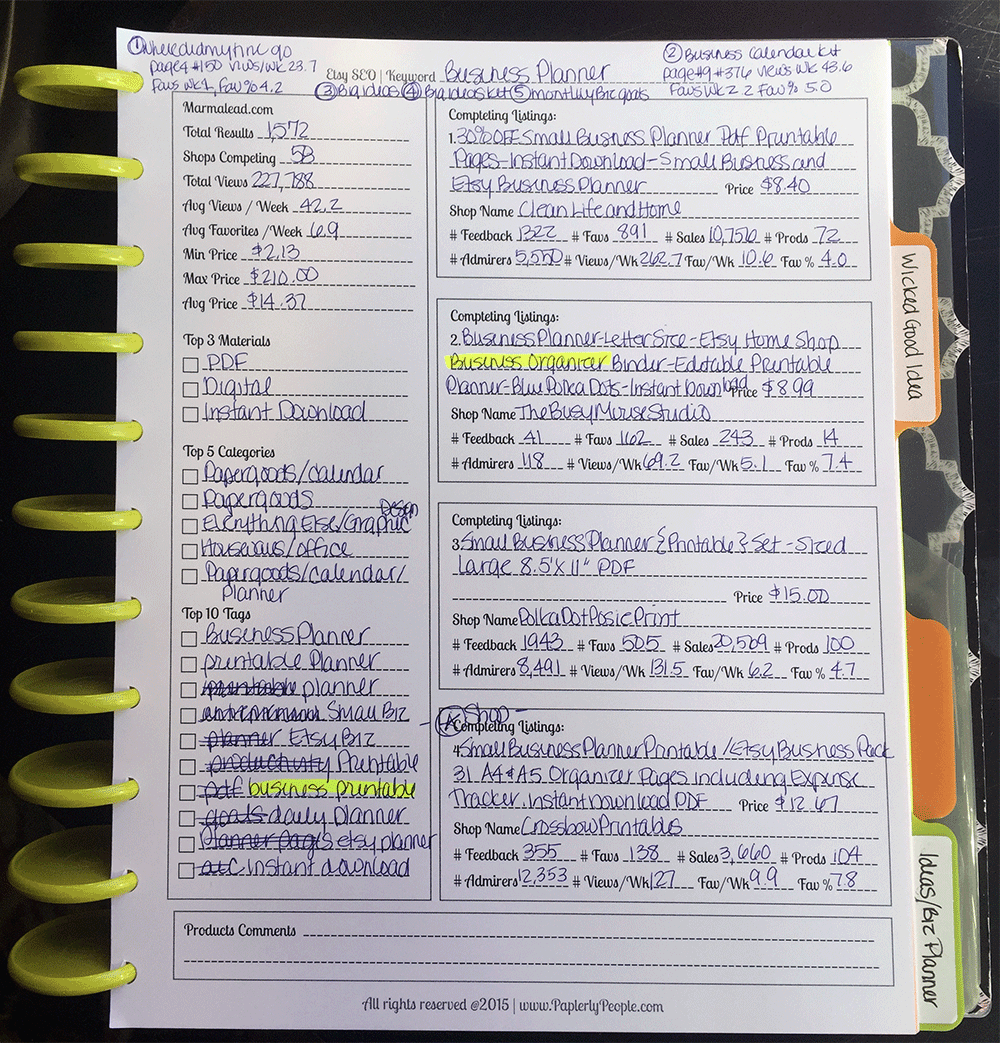 ① wheredidmytime go
page4 #150 views/wk 23.7
Favs wk 1, Fav % 4.2
② Business Calendar Kit
page#9 #376 views wk 43.6
Favs Wk 2.2 Fav % 5.0
Etsy SEO | Keyword Business Planner
③ Big ideas ④ Big ideas kit ⑤ monthly Biz goals
Marmalead.com
Total Results 1,572
Shops Competing 58
Total Views 227,788
Avg Views / Week 42.2
Avg Favorites /Week 6.9
Min Price $2.13
Max Price $210.00
Avg Price $14.37
Top 3 Materials
PDF
Digital
Instant Download
Top 5 Categories
Papergoods/calendar
Papergoods
Everything Else/Graphic Design
Housewares/office
Papergoods/calendar/
planner
Top 10 Tags
Business Planner
printable Planner
printable planner
entrepreneur Small Biz
planner Etsy Biz
productivity Printable
pdf business printable
goals daily Planner
Planner pages etsy planner
atc instant download
Completing Listings:
1. 30% OFF Small Business Planner Pdf Printable
Pages-Instant Download-Small Business and
Etsy Business Planner Price $8.40
Shop Name Clean Life and Home
# Feedback 1322 # Favs 891 # Sales 10,756 # Prods 72
# Admirers 5,550 # Views/Wk 262.7 Fav/Wk 10.6 Fav % 4.0
Completing Listings:
2. Business Planner-Letter Size-Etsy Home Shop
Business Organizer Binder-Editable Printable
Planner-Blue Polka Dots-Instant Download Price $8.99
Shop Name TheBusyMouseStudio
# Feedback 41 # Favs 162 # Sales 243 # Prods 14
# Admirers 118 # Views/Wk 69.2 Fav/Wk 5.1 Fav % 7.4
Completing Listings:
3 Small Business Planner {Printable} Set-Sized
Large 8.5'X11" PDF
Price $15.00
Shop Name PolkaDotPosiePrint
# Feedback 1943 # Favs 505 # Sales 20,509 # Prods 100
# Admirers 8,491 # Views/Wk 131.5 Fav/Wk 6.2 Fav % 4.7
Shop -
Completing Listings:
4. Small Business Planner Printable /Etsy Business Pack
31 A4&A5 Organizer Pages including Expense
Tracker. Instant Download PDF Price $12.67
Shop Name CrossbowPrintables
# Feedback 355 # Favs 138 # Sales 3,660 # Prods 104
# Admirers 12,353 # Views/Wk 127 Fav/Wk 9.9 Fav % 7.8
Products Comments
All rights reserved @2015 | www.PaplerlyPeople.com
Wicked Good Idea
Ideas/Biz Planner